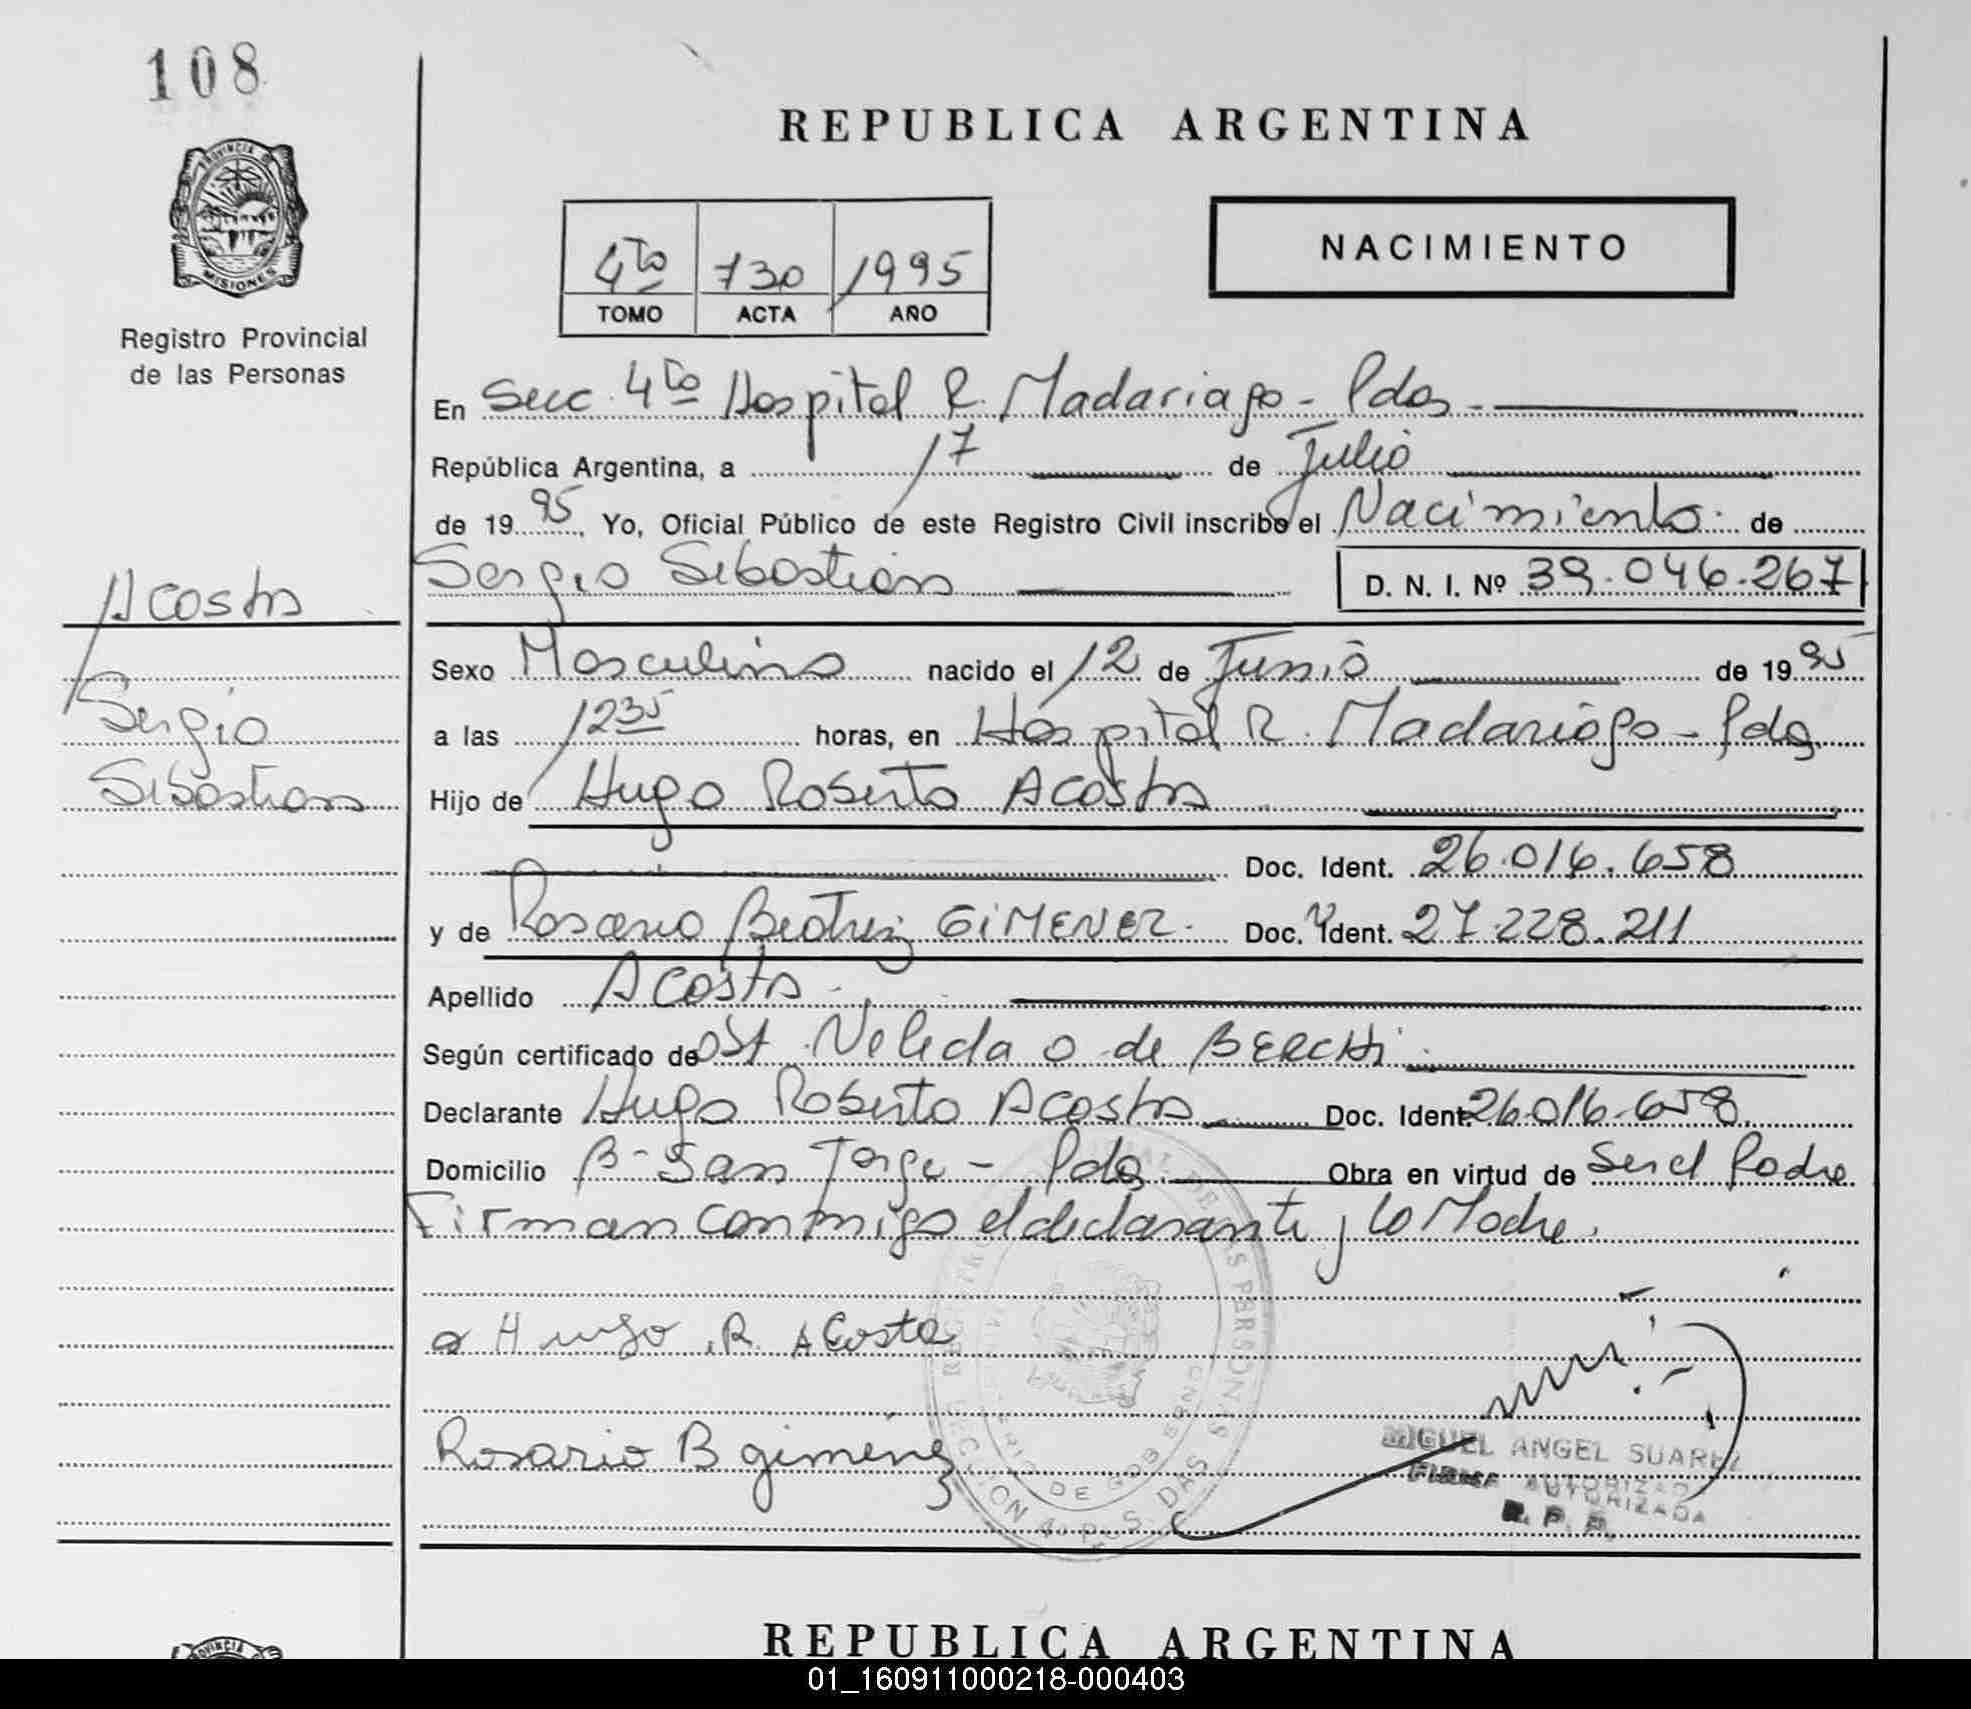 108
REPUBLICA ARGENTINA
PROVINCIA DE
MISIONES
Registro Provincial
de las Personas
4to 730 1995
TOMO ACTA AÑO
NACIMIENTO
En Secc. 4to Hospital R. Madariaga - Pdas -
República Argentina, a 17 de Julio
de 1995, Yo, Oficial Público de este Registro Civil inscribo el Nacimiento de
Sergio Sebastian D. N. I. Nº 39.046.267
Acosta
Sergio
Sebastian
Sexo Masculino nacido el 12 de Junio de 1995
a las 1235 horas, en Hospital R. Madariaga - Pdas
Hijo de Hugo Roberto Acosta
Doc. Ident. 26.016.658
y de Rosario Beatriz GIMENEZ. Doc. Ident. 27.228.211
Apellido Acosta.
Según certificado de Ost. de BERCHI.
Declarante Hugo Roberto Acosta Doc. Ident. 26.016.658.
Domicilio Bº San Jorge - Pdas. Obra en virtud de Ser el Padre
Firman conmigo el declarante y la Madre.
Hugo .R. Acosta
Rosario B gimenez
MIGUEL ANGEL SUAREZ
FIRMA AUTORIZADA
R. P. P.
REPUBLICA ARGENTINA
PROVINCIA
01_160911000218-000403